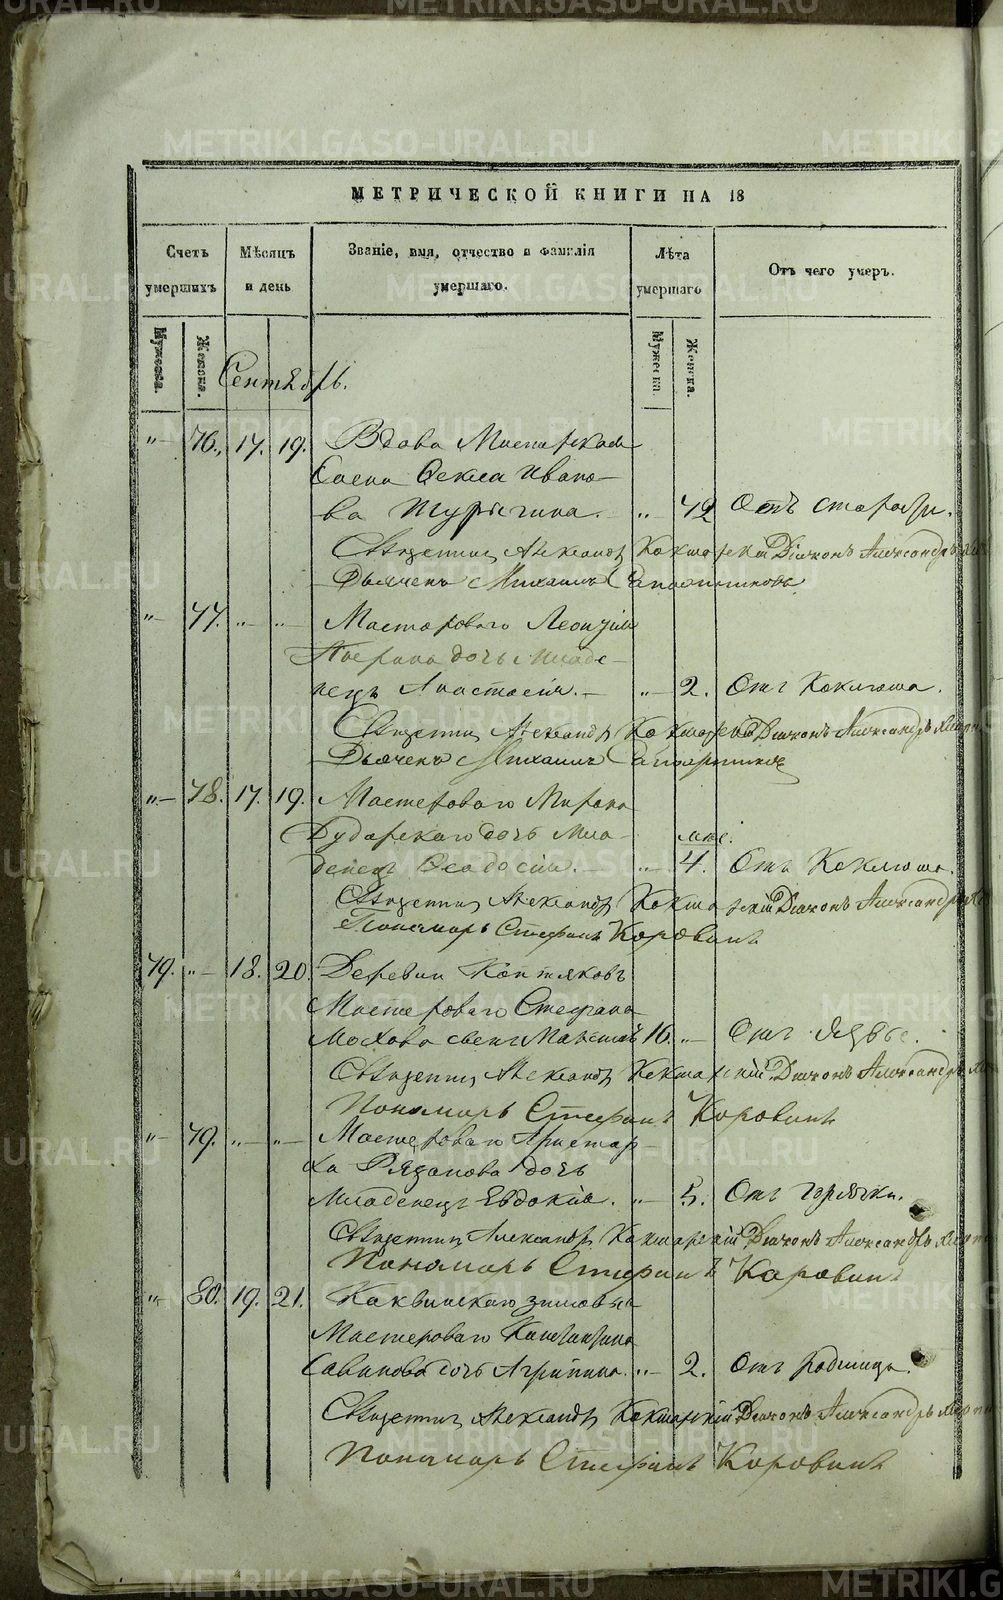 МЕТРИЧЕСКОЙ КНИГИ НА 18
Счетъ умершихъ
Мѣсяцъ и день
Званіе, имя, отчество и фамилія умершаго.
Лѣта умершаго
Отъ чего умеръ.
Мужеска. Женска. Мужеска. Женска.
Сентябрь.
"— 76. 17. 19. Вдова Мастерская
Ивано-
ва — " 72 Отъ старости.
Священникъ Александръ Кокшарскій Діаконъ Александръ
Дьячекъ Михаилъ Сапожниковъ
"— 77. "— "— Мастероваго Леонтія
дочь младе-
нецъ Анастасія. — "— 2. Отъ Коклюша.
Священникъ Александръ Кокшарскій Діаконъ Александръ
Дьячекъ Михаилъ Сапожниковъ
"— 78. 17. 19. Мастероваго Мирона
Бударскаго дочь мла- мѣс.
денецъ Ѳеодосія. — "— 4. Отъ Коклюша.
Священникъ Александръ Кокшарскій Діаконъ Александръ
Пономарь Стефанъ Коровинъ
79. "— 18. 20. Деревни Коптяковъ
Мастероваго Стефана
Мохова сынъ 16. "— Отъ
Священникъ Александръ Кокшарскій Діаконъ Александръ
Пономарь Стефанъ Коровинъ
"— 79. "— "— Мастероваго Аристар-
ха Рязанова дочь
младенецъ Евдокія. "— 5. Отъ горячки.
Священникъ Александръ Кокшарскій Діаконъ Александръ
Пономарь Стефанъ Коровинъ
"— 80. 19. 21. Каквинскаго зимовья
Мастероваго Константина
Савинова дочь Агрипина. "— 2. Отъ родимца.
Священникъ Александръ Кокшарскій Діаконъ Александръ
Пономарь Стефанъ Коровинъ
METRIKI.GASO-URAL.RU